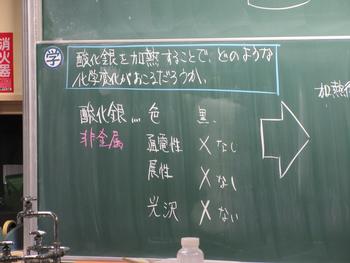 消火器
学 酸化銀を加熱することで、どのような
化学変化がおこるだろうか。
酸化銀… 色 黒
非金属 通電性 ✕なし
展性 ✕なし
光沢 ✕ない
加熱